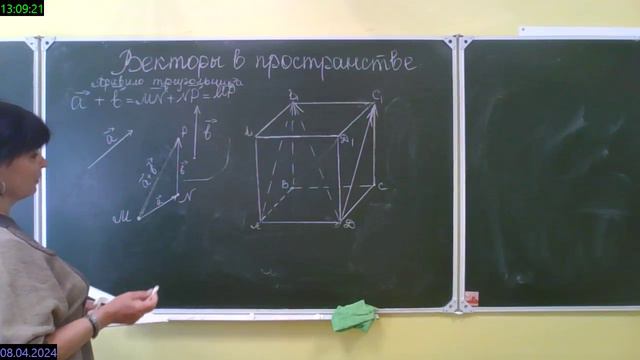 13:09:21
Векторы в пространстве
Правило треугольника
a + b = MN + NP = MP
B₁ C₁
a
P
b
A₁ D₁
a+b
b
B C
a
N
M
A D
08.04.2024